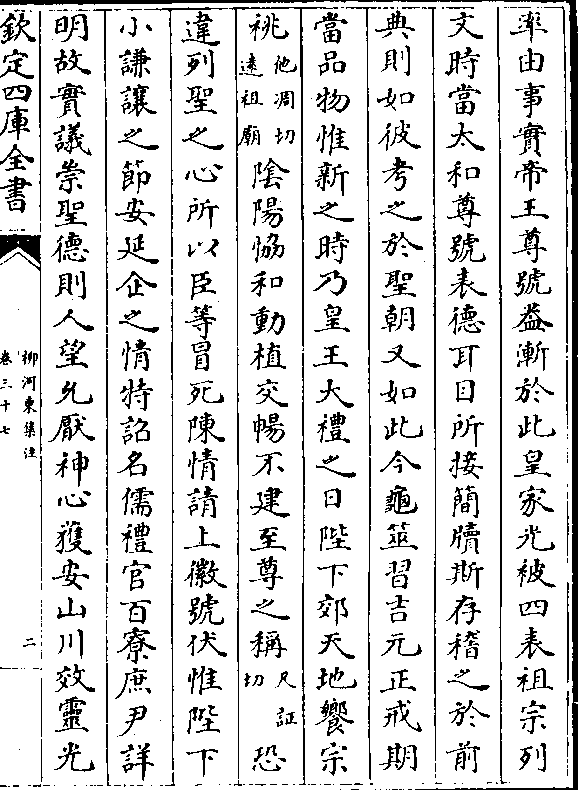 率由事實帝王尊號益漸於此皇家光被四表祖宗列
文時當太和尊號表德耳目所接簡牘斯存稽之於前
典則如彼考之於聖朝又如此今龜筮習吉元正戒期
當品物惟新之時乃皇王大禮之日陛下郊天地饗宗
祧他凋切遠祖廟陰陽恊和動植交暢不建至尊之稱尺証切恐
違列聖之心所以臣等冒死陳情請上徽號伏惟陛下
小謙讓之節安延企之情特詔名儒禮官百寮庶尹詳
明故實議崇聖德則人望允厭神心獲安山川效靈光
欽定四庫全書
柳河東集注
卷三十七
二